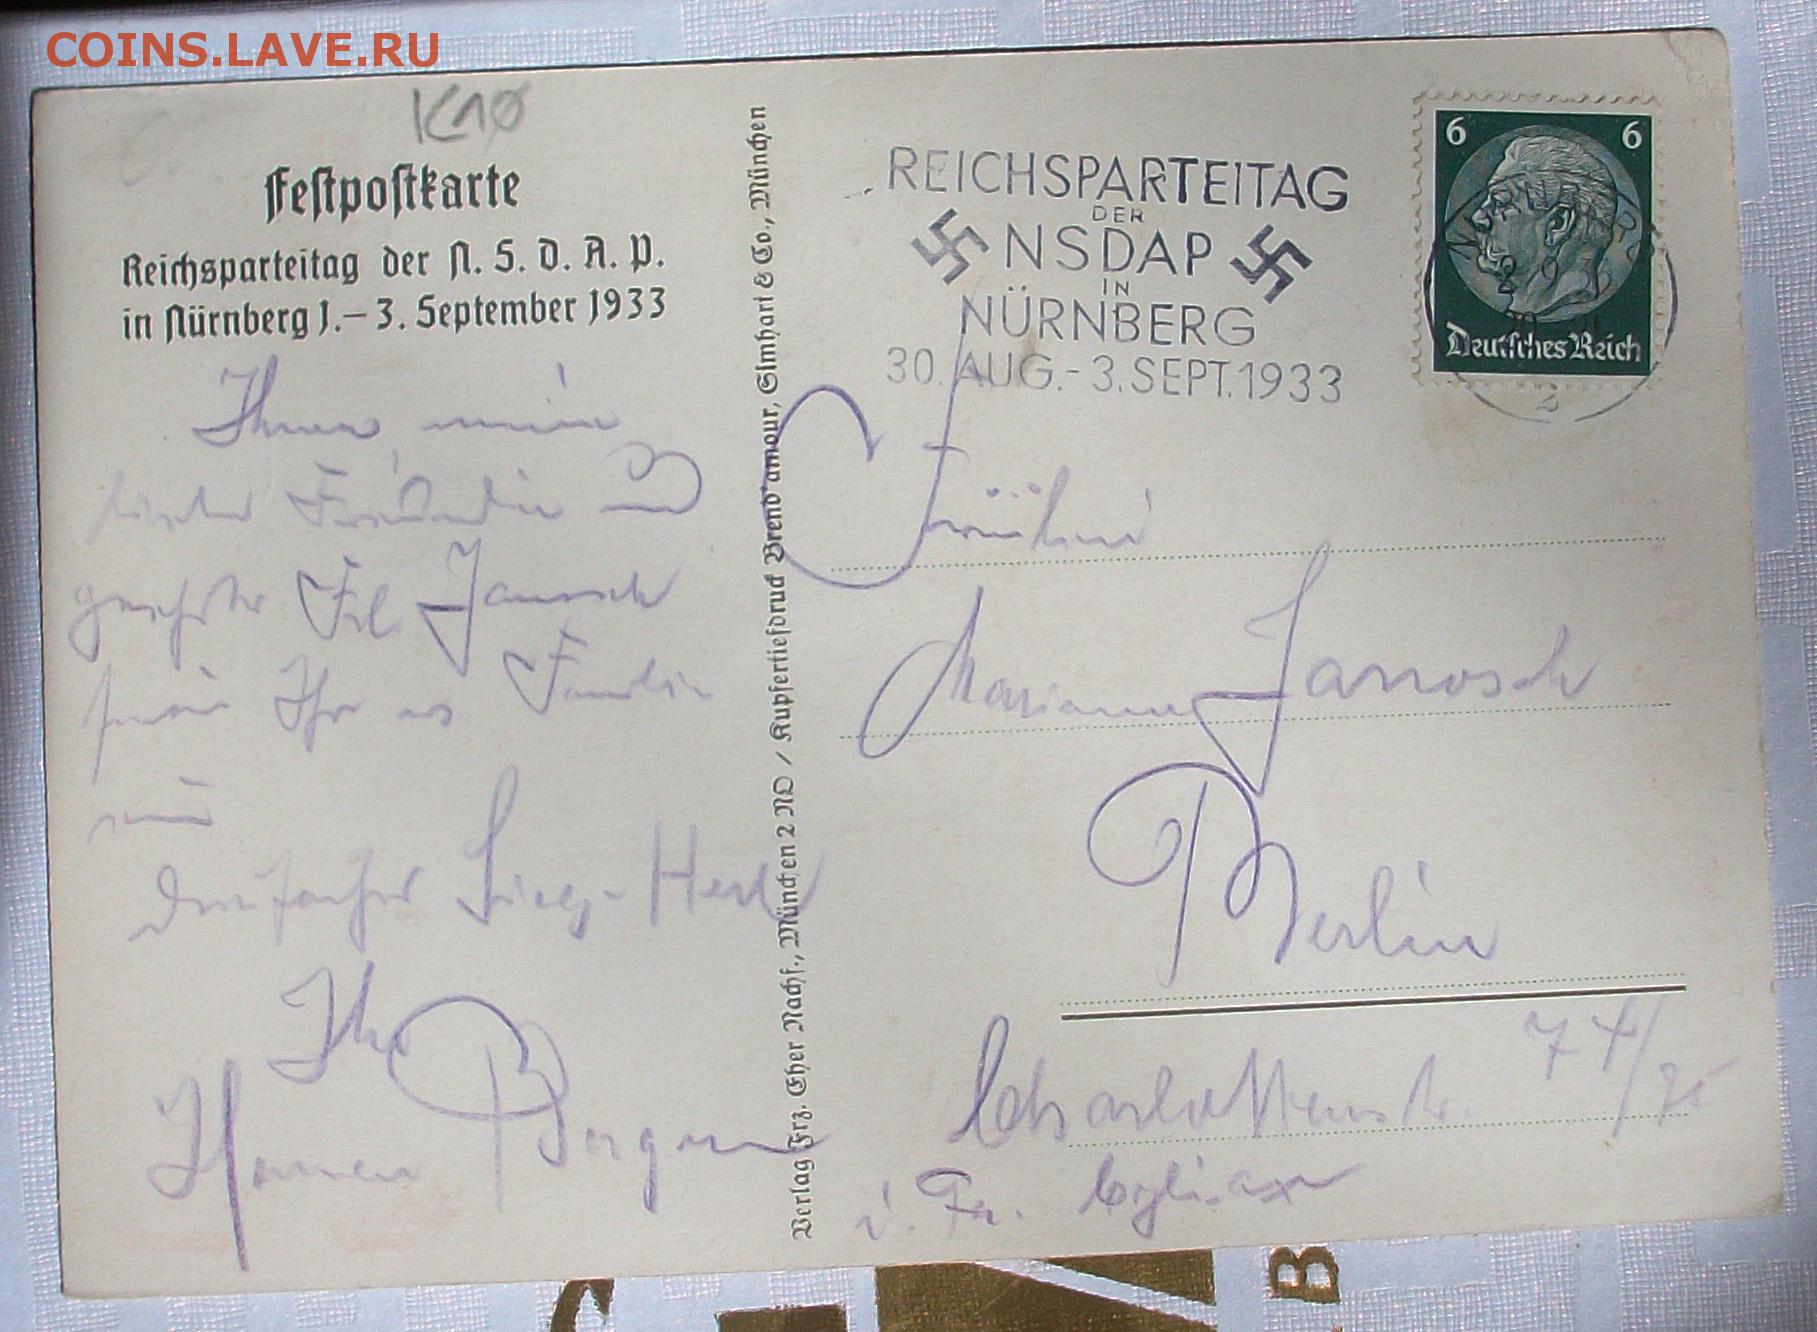 COINS.LAVE.RU
K10
Festpostkarte
Reichsparteitag der N. S. D. A. P.
in Nürnberg 1.–3. September 1933
Ihnen, meine
Freundin und
geehrte Frl. Janosch
Ihr Familie
Sieg-Heil
Ihr
Verlag Frz. Eher Nachf., München 2 NO / Kupfertiefdruck Brend'amour, Simhart & Co., München
REICHSPARTEITAG
DER
NSDAP
IN
NÜRNBERG
30. AUG.-3. SEPT. 1933
6 6
Deutsches Reich
2
Fräulein
Marianne Janosch
Berlin
Charlottenstr. 74/75
B